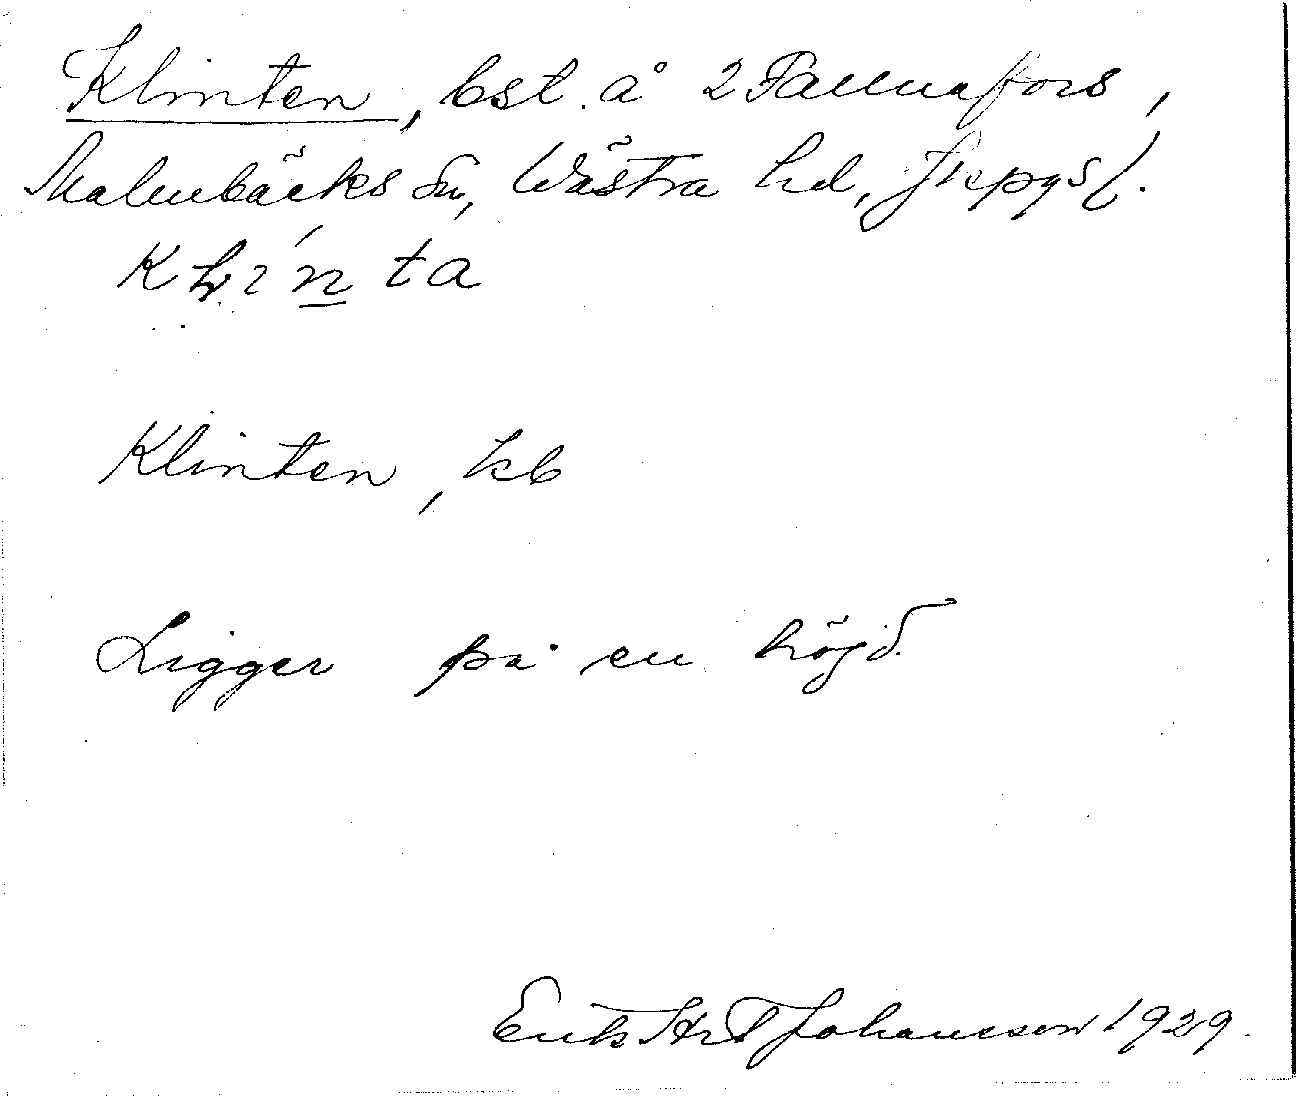 Klinten, bst. å 2 Fallnafors,
Malmbäcks sn, Västra hd, Jkpgs l.
Klínta
Klinten, kb
Ligger på en höjd.
Erik Johansson 1929.